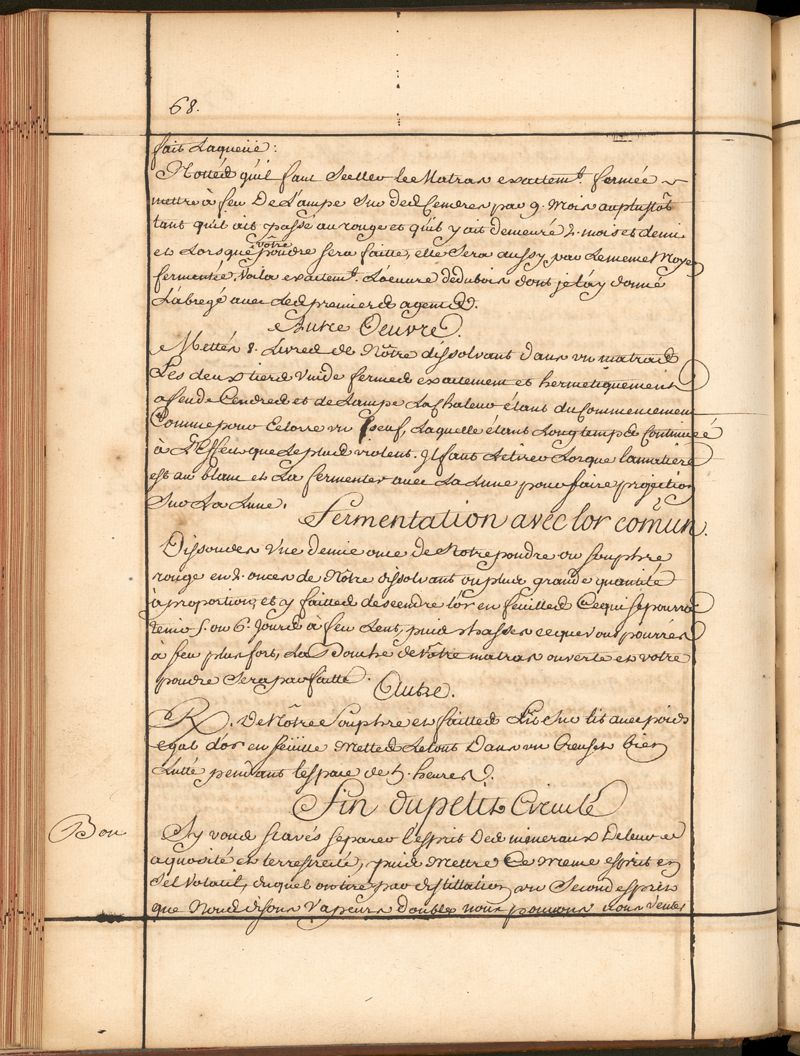 68.
fait Laqueüe:
Nottéd quil faut Sceller Le Matras exactem.t fermée
mettre à feu De Lampe Sur ded Cendres par 9. Mois auplustôt
tant quil ait passé au rouge et quil y ait demeuré 2. mois et demi
et Lorsque vôtre poudre sera faitte, elle sera aussy par Lememe Moyen
fermentée. Voila exactem.t L'oeuvre dedubois dont jelay donné
Labregé avec Led premierd agentd.
Autre Oeuvre.
Mettés 8. Livred de Nôtre dissolvant Dans vn matrad
Les deux tierd Vuide fermed exactement et hermetiquement
a feu de Cendred et de Lampe La Chaleur étant du Commencement
Comme pour Eclorre vn Oeuf, Laquelle étant Longtempd Continuée
à L'Effeu que le plud violent. Il faut Letirer Lorque lamatiere
est au blanc et La fermenter avec La Lune pour faire projection
Sur La Lune.
Fermentation avec lor comun.
Dissoudes Vne demie once de Notre poudre ou souphre
rouge en 2. onces de Nôtre dissolvant ou plud grande quantité
à proportion, et y faitted descendre l'or en feuilled Cequi sepourra
tenir 5. ou 6. Jourd à feu Lent, puid chassés ceque Vous pourrés
à feu plus fort, La Bouche de Vôtre matras ouverte et votre
poudre Sera parfaitte.
Autre.
R. De Nôtre Souphre et faitted Lit Sur lit avec poids
egal d'or en feüille Metted Letout Dans vn Creuset bien
Lutté pendant Lespace de 5. heures.
Fin du petit Circulé
Bon
Sy voud scavés separer L'esprit Ded mineraux De leur
aquosité et terrestreité, puid Mettre Ce Meme esprit en
Sel Volatil, duquel on tire par distillation, vn Second esprit
que Noud disons Vapeurs Doubles nous pouvons nous Venter